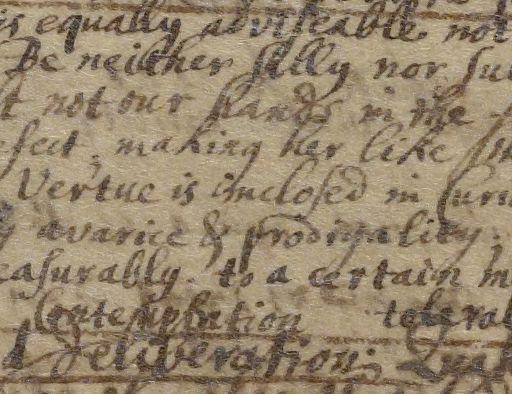 is equally adviseable not
Be neither silly nor su
t not our hands in the
efect, making her like
Vertue is inclosed in
y avarice & prodigality.
easurably. to a certain m
Contemplation tolerab
Deliberation.